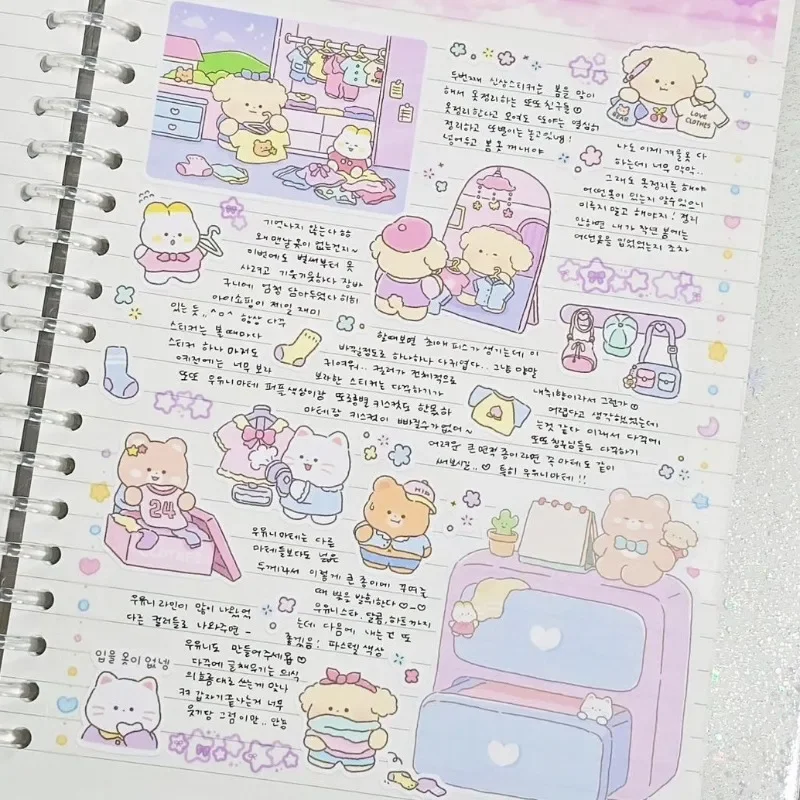 두번째 신상스티커는 봄을 맞이
해서 옷정리하는 또또친구들
옷정리한다고 모여도 또야는 열심히
정리하고 또뽀이는 놀고있냉!
넣어두고 봄옷 꺼내야
BEAR
LOVE
CLOTHES
나도 이제 겨울옷 다
하는데 너무 막막..
그래도 옷정리를 해야
어떤옷이 있는지 알수있으니
미루지 말고 해야지! 정리
안하면 내가 작년 봄에는
어떤옷을 입었었는지 조차
기억나지 않는다
왜 맨날 옷이 없는건지~
이번에도 벌써부터 옷
사려고 기웃기웃하다 장바
구니에 엄청 담아두었다 히히
아이쇼핑이 제일 재미
있는 듯,, ^o^ 항상 다꾸
스티커는 볼때마다
스티커 하나 마저도
너무 보라
또또 우유니마테 퍼프색상이랑
할때보면 최애 피스가 생기는데 이
바낄정도로 하나하나 다귀엽다..
귀여워.. 컬러가 전체적으로
보라한 스티커는 다꾸하기가
또롱별 키스컷도 함꼐하
마테랑 키스컷이 빠질수가없어~
내취향이라서 그런가
어렵다고 생각했었는데
는것 같다 이래서 다꾸에
또또친구님들도 다꾸하기
어려운 큰 면적 종이라면 꼭 마테도 같이
써보시길.. ♡ 특히 우유니마테!!
24
우유니마테는 다른
마테들보다도 넓은
두께라서 이렇게 큰 종이에 꾸며줄
때 빛을 발휘한다 ♡-♡
우유니스타, 달콤, 하트까지
는데 다음에 내는건 또
좋겠음! 파스텔 색상
우유니 라인이 많이 나왔었
다른 컬러들로 나와주면 ~
우유니도 만들어주세욥 ♡
다꾸에 글채우기는 의식
의 흐름대로 쓰는게 맞나
갑자기 끝나는거 너무
웃기당 그럼 이만.. 안농
입을 옷이 없넹